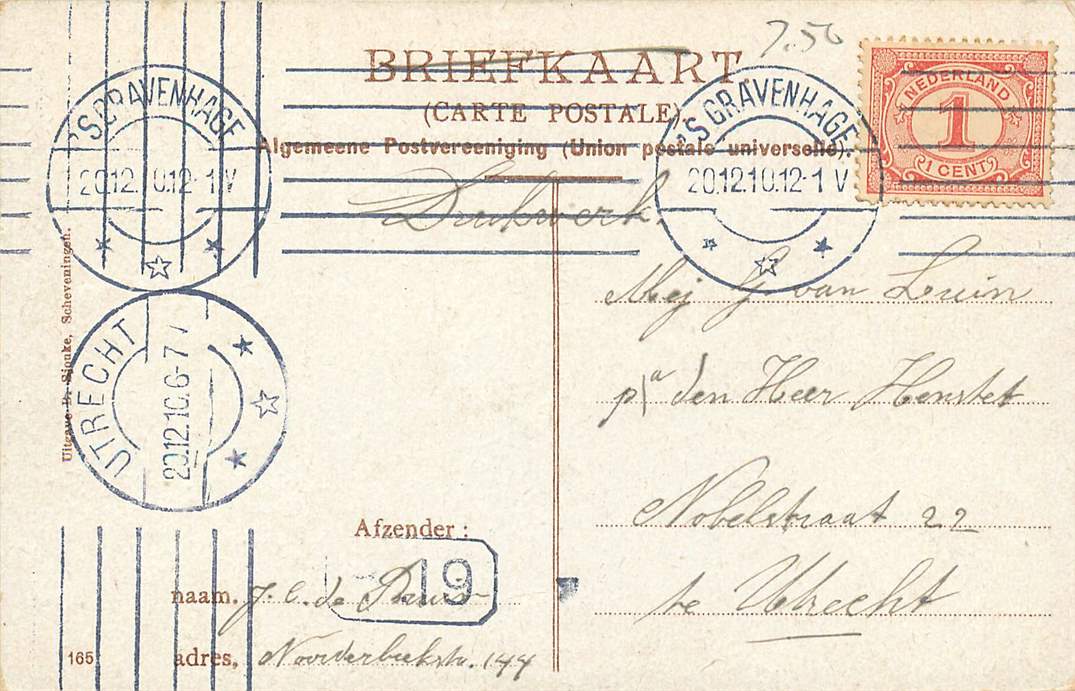 7.50
BRIEFKAART.
(CARTE POSTALE).
Algemeene Postvereeniging (Union postale universelle).
NEDERLAND
1
1 CENT
'S GRAVENHAGE
20.12.10.12-1 V
'S GRAVENHAGE
20.12.10.12-1 V
Drukwerk.
Mej G. van Luin
p/a den Heer Henstet
Nobelstraat 22
te Utrecht
UTRECHT
20.12.10.6-7
Uitgave D. Sjouke, Scheveningen.
Afzender:
19
naam. J. C. de
adres, Noorderbeekstr. 144
165